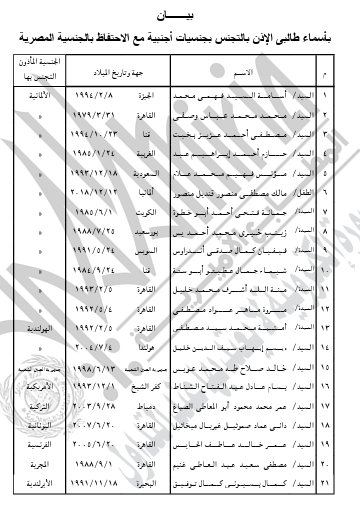 بيـــــان
بأسماء طالبى الإذن بالتجنس بجنسيات أجنبية مع الاحتفاظ بالجنسية المصرية
م الاســـم جهة وتاريخ الميلاد الجنسية المأذون التجنس بها
١ السيد/ أسامة السيد فهمى محمد الجيزة ١٩٩٤/٢/٨ الألمانية
٢ السيد/ محمد محمد عباس وصفى القاهرة ١٩٧٩/٣/٣١ »
٣ السيد/ مصطفى أحمد عزيز بخيت قنا ١٩٩٤/١٠/٢٣ »
٤ السيد/ حازم أحمد إبراهيم عيد الغربية ١٩٨٥/١/٢٤ »
٥ السيد/ مؤنس فهيم محمد علام السعودية ١٩٩٣/١٢/١٨ »
٦ الطفل/ مالك مصطفى منصور قنديل منصور ألمانيا ٢٠١٨/١٢/١٢ »
٧ السيدة/ جمالة فتحى أحمد أبو خطوة الكويت ١٩٨٥/٦/١ »
٨ السيدة/ زينب خيرى محمد أحمد يس بورسعيد ١٩٨٨/٧/٢٥ »
٩ السيدة/ فيفيان كمال صدقى أندراوس السويس ١٩٩١/٥/٢٤ »
١٠ السيدة/ شيماء جمال عطيتو أبو سنة قنا ١٩٨٤/٩/٢٤ »
١١ السيدة/ منة الله أشرف محمد خليل القاهرة ١٩٩٣/٢/٥ »
١٢ السيدة/ مروة ماهر عواد مصطفى القاهرة ١٩٩٢/٥/٤ »
١٣ السيدة/ أمنية محمد سيد مصطفى القاهرة ١٩٩٢/٢/٥ الهولندية
١٤ السيد/ إيهاب سيف الدين خليل هولندا ٢٠٠٤/٧/٤ »
١٥ السيد/ خالد صلاح طه محمد عويس ١٩٩٨/٦/١٣
١٦ السيد/ بسام عادل عبد الفتاح الشناط كفر الشيخ ١٩٩٣/١٢/١ الأمريكية
١٧ السيد/ عمر محمد محمود أبو المعاطى الصباغ دمياط ٢٠٠٣/٩/٢٨ التركية
١٨ السيد/ دانى عماد صموئيل غبريال ميخائيل القاهرة ٢٠٠٧/٦/٢٠ اليونانية
١٩ السيد/ عمر خالد عاطف الحابس القاهرة ٢٠٠٥/٦/٢٠ الفرنسية
٢٠ السيد/ مصطفى سعيد عبد العاطى غنيم القاهرة ١٩٨٨/٩/١ المجرية
٢١ السيد/ كمال بسيونى كمال توفيق البحيرة ١٩٩١/١١/١٨ الأيرلندية